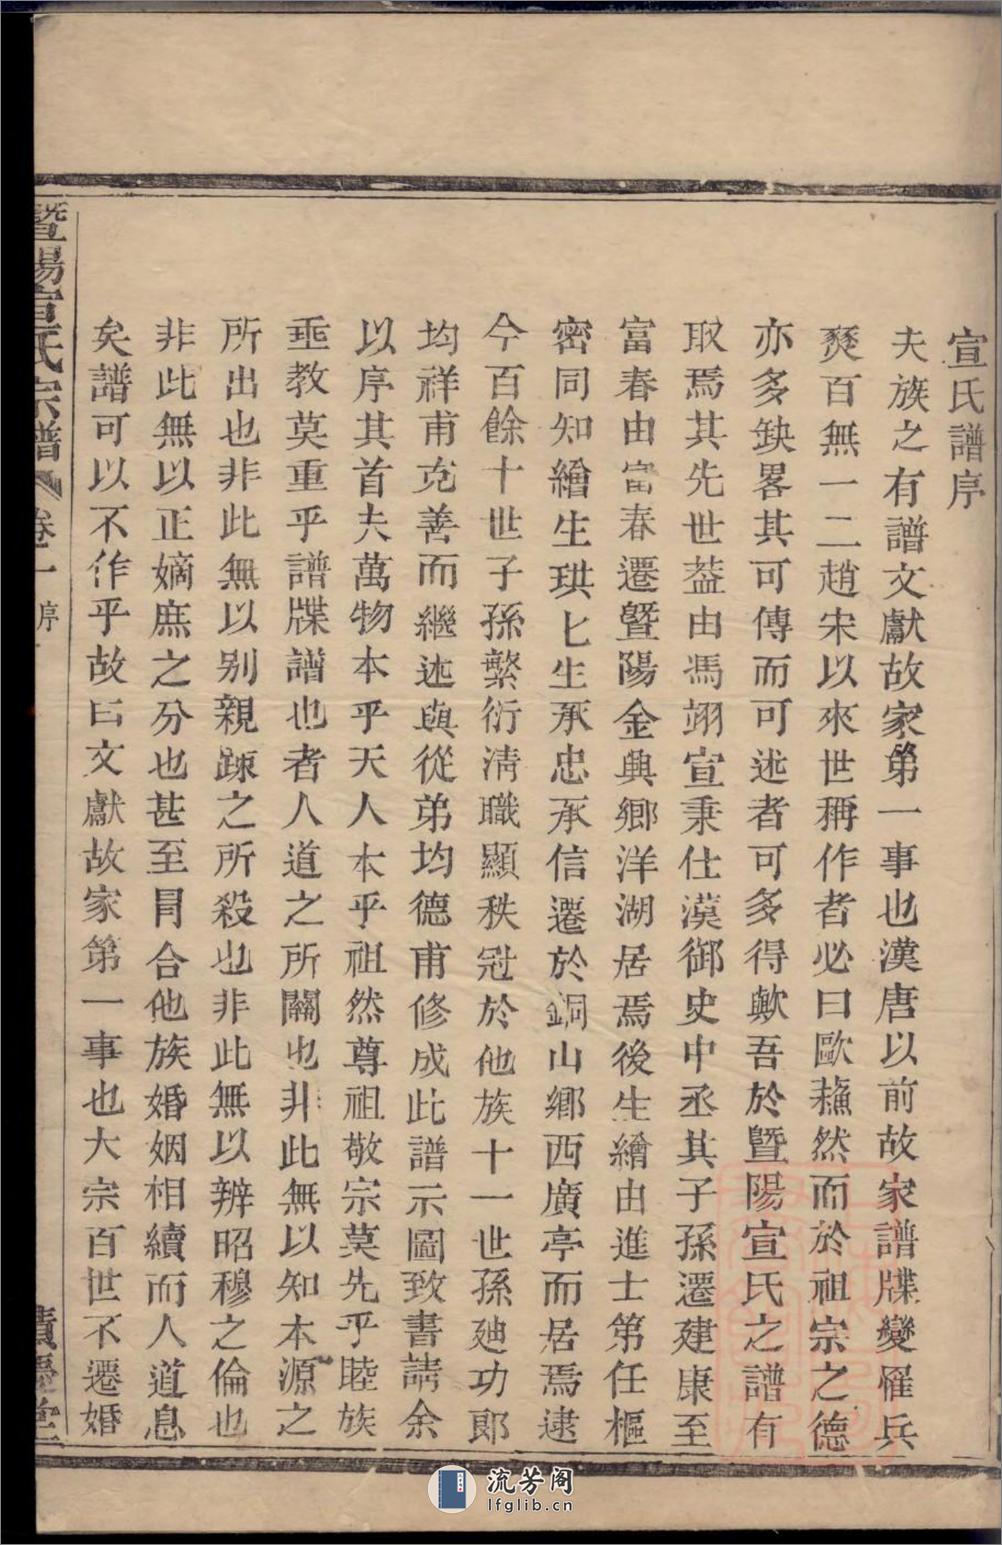 宣氏譜序
夫族之有譜文獻故家第一事也漢唐以前故家譜牒變罹兵
燹百無一二趙宋以來世稱作者必曰歐蘓然而於祖宗之德
亦多缺畧其可傳而可述者可多得歟吾於曁陽宣氏之譜有
取焉其先世葢由馮翊宣秉仕漢御史中丞其子孫遷建康至
富春由富春遷曁陽金興鄉洋湖居焉後生繪由進士第任樞
密同知繪生珙七生承忠承信遷於銅山鄉西廣亭而居焉逮
今百餘十世子孫繁衍清職顯秩冠於他族十一世孫廸功郎
均祥甫克善而繼述與從弟均德甫修成此譜示圖致書請余
以序其首夫萬物本乎天人本乎祖然尊祖敬宗莫先乎睦族
垂教莫重乎譜牒譜也者人道之所關也非此無以知本源之
所出也非此無以别親踈之所殺也非此無以辨昭穆之倫也
非此無以正嫡庶之分也甚至冐合他族婚姻相續而人道息
矣譜可以不作乎故曰文獻故家第一事也大宗百世不遷婚
曁陽宣氏宗譜 卷一 序
流芳阁
lfglib.cn